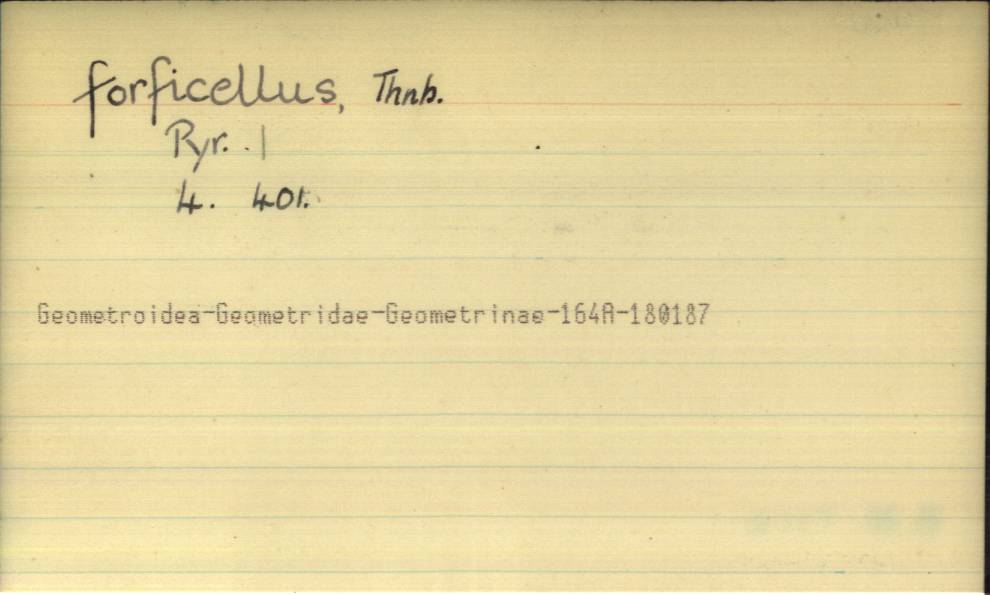 forficellus, Thnb.
Pyr. |
4. 401.
Geometroidea-Geometridae-Geometrinae-164A-180187